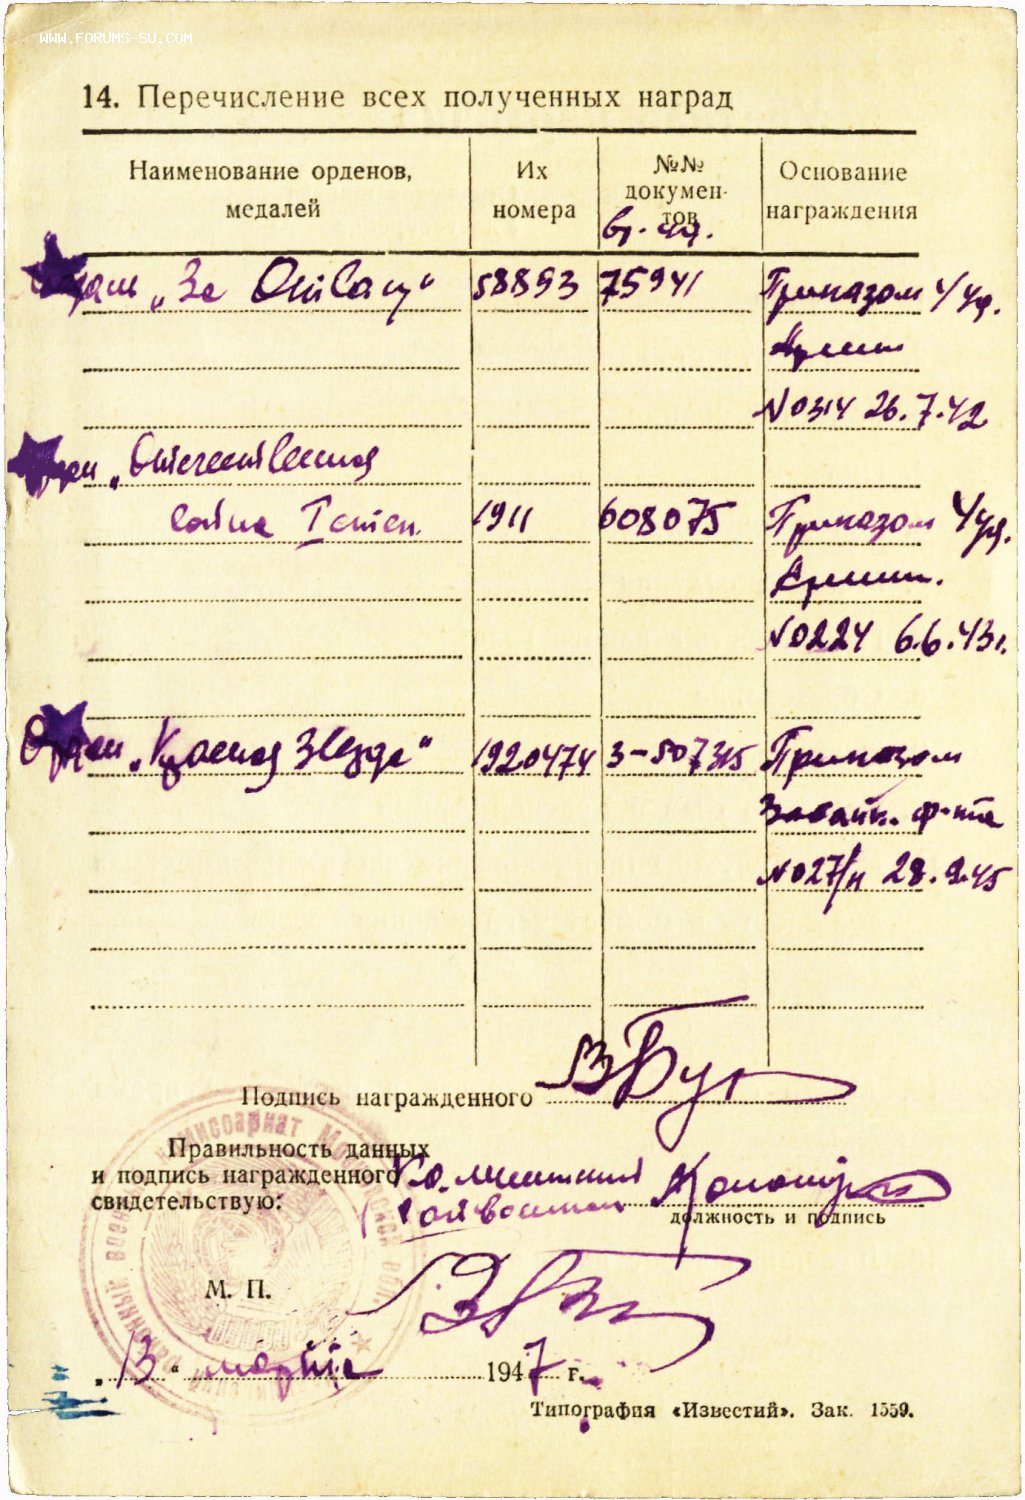 WWW.FORUMS-SU.COM
14. Перечисление всех полученных наград
Наименование орденов, медалей
Их номера
№№ документов
вр. уд.
Основание награждения
"За Отвагу" 58893 75941 Приказом 4 уд.
Армии
N 0314 26.7.42
Орден "Отечественная
война I степ. 1911 608075 Приказом 4 уд.
Армии.
N 0224 6.6.43 г.
Орден "Красная Звезда" 1920474 З-507315 Приказом
Забайк. ф-та
N 027/н 28.9.45
Подпись награжденного
Правильность данных
и подпись награжденного
свидетельствую:
райвоенком
должность и подпись
М. П.
"13" марта 1947 г.
Типография «Известий». Зак. 1559.